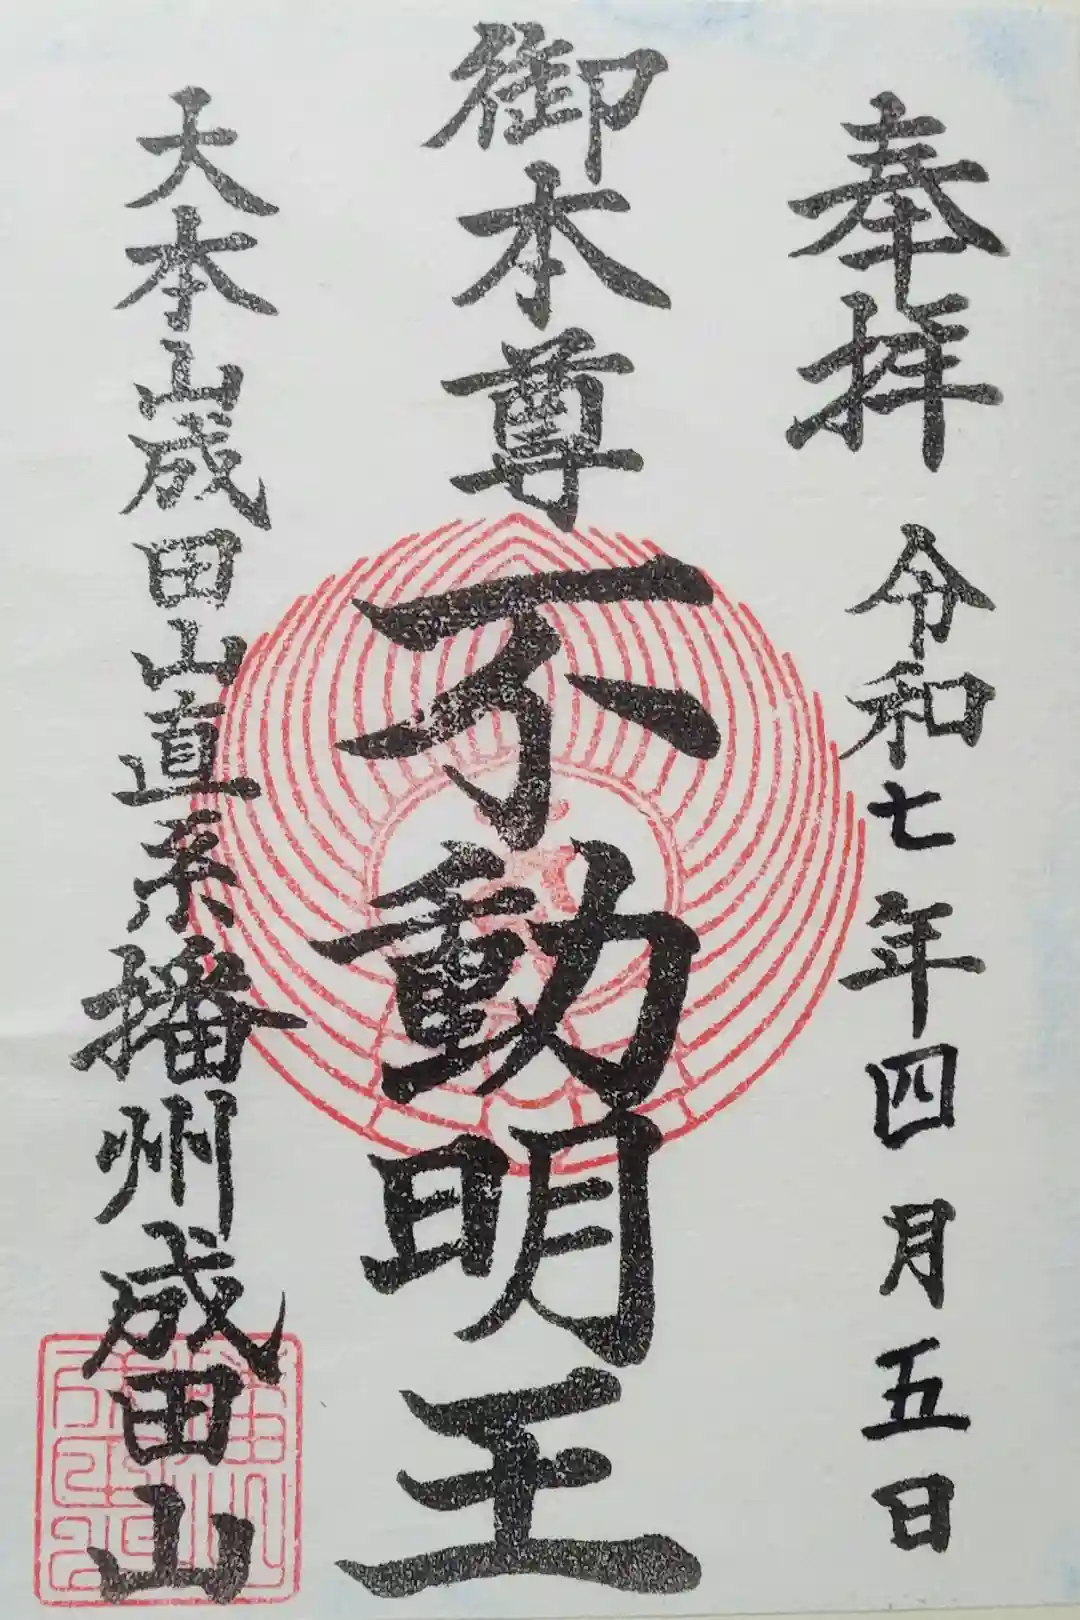 奉拝 令和七年四月五日
御本尊 不動明王
大本山成田山直系播州成田山